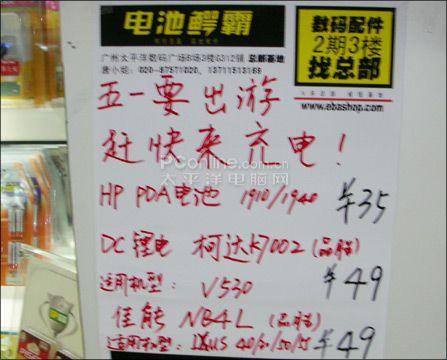 电池鳄霸
广州太平洋数码广场B场3楼G312铺 总部基地
唐小姐: 020-87571020, 13711513168
数码配件
2期3楼
找总部
www.ebashop.com
五一要出游
赶快来充电!
PConline.com.cn
太平洋电脑网
HP PDA电池 1910/1940 ¥35
DC锂电 柯达K7002 (品胜)
适用机型: V530 ¥49
佳能 NB4L (品胜)
适用机型: IXUS 40/30/50/55 ¥49